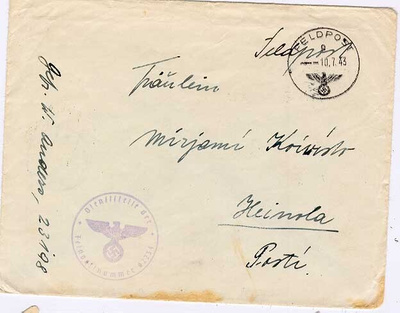 Feldpost
FELDPOST
10.7.43
Fräulein
Mirjami Koivisto
Heinola
Posti.
Dienststelle der
Feldpostnummer
23198